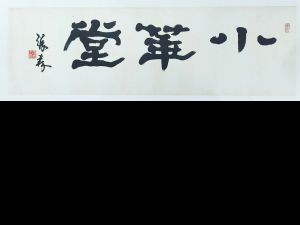 小華堂
張森